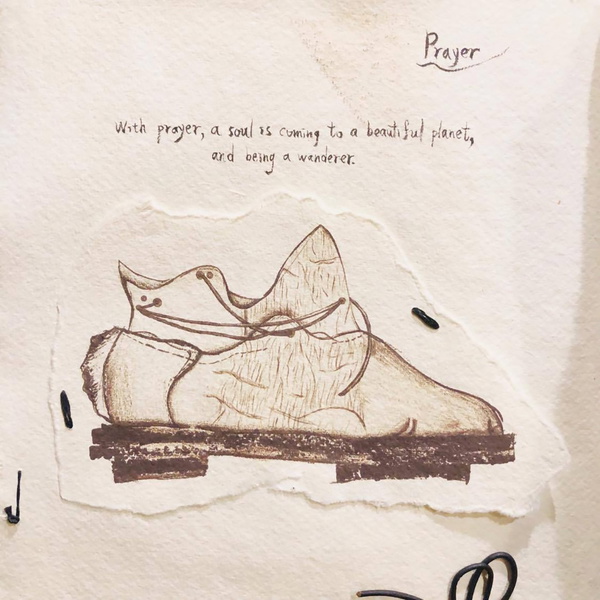 Prayer
With prayer, a soul is coming to a beautiful planet,
and being a wanderer.